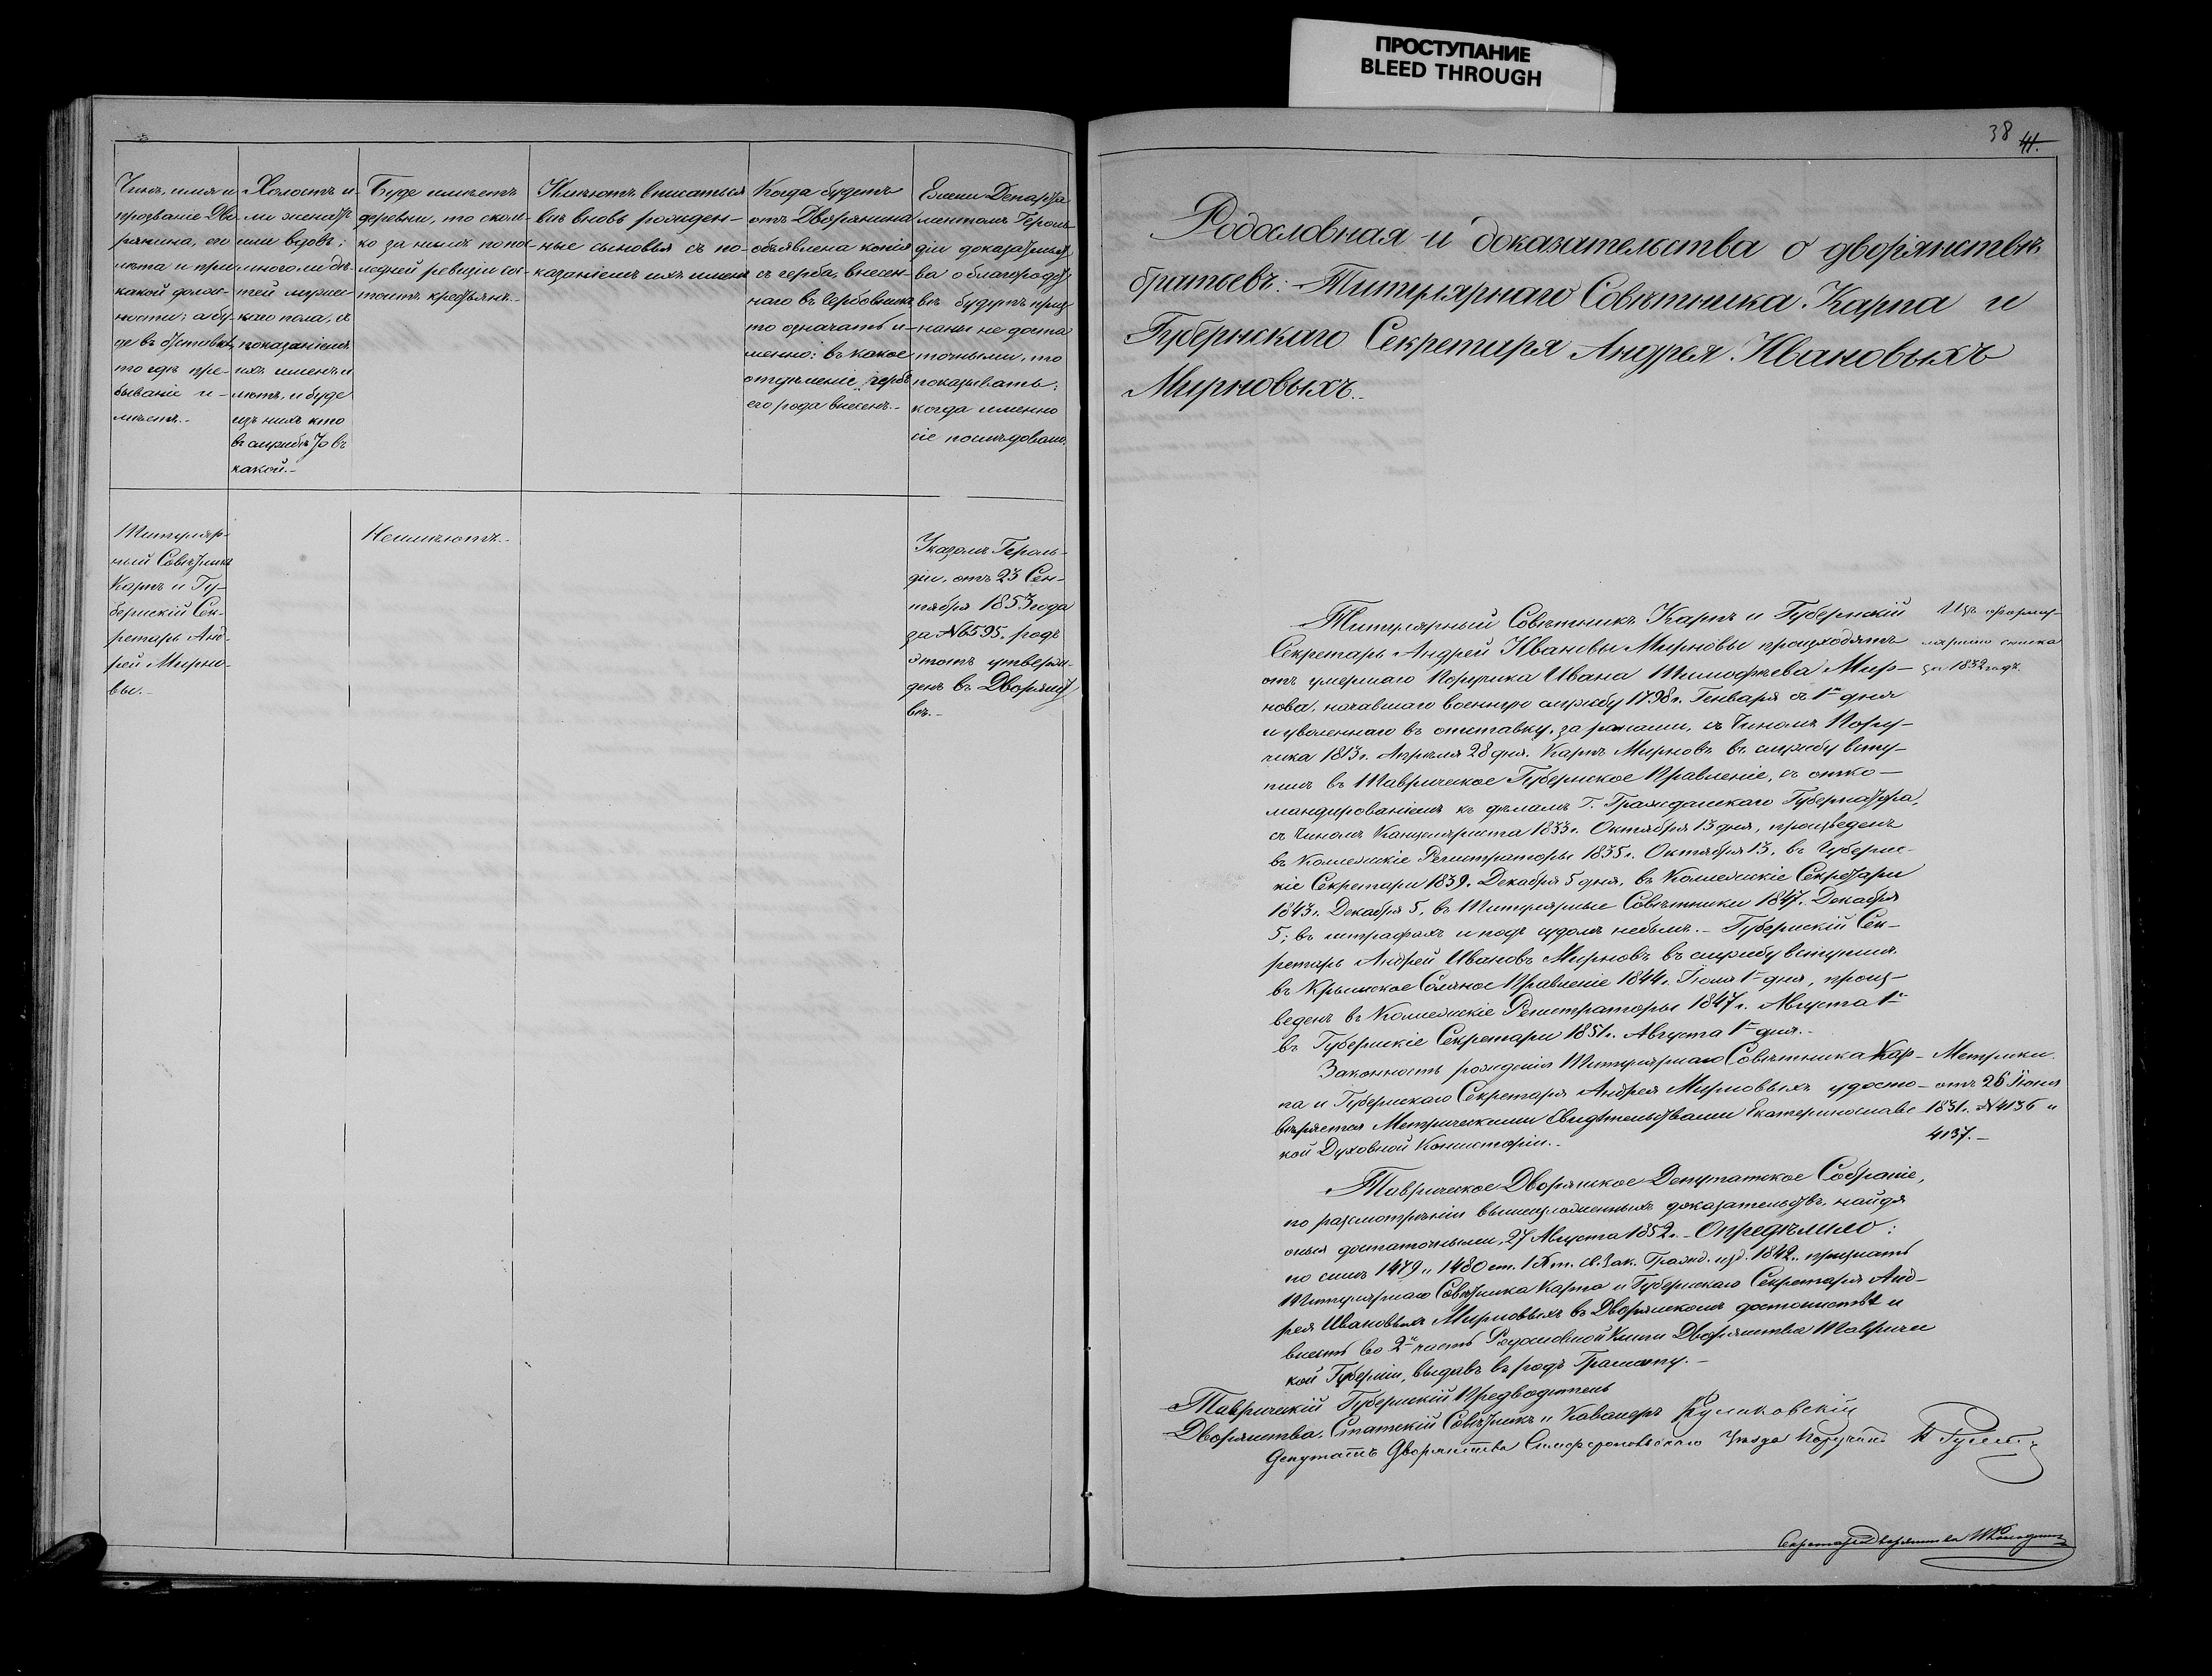 ПРОСТУПАНИЕ
BLEED THROUGH
Чинъ, имя и
прозваніе Дво
рянина, его
лѣта и при
какой долж-
ности; а бу-
де въ отставкѣ,
то гдѣ пре-
бываніе и-
мѣетъ.-
Холостъ и-
ли женатъ
или вдовъ;
много ли дѣ-
тей мужес-
каго пола, съ
показаніемъ
ихъ именъ и
лѣтъ, и буде
изъ нихъ кто
въ службѣ то въ
какой.-
Буде имѣетъ
деревни, то сколь-
ко за нимъ по пос-
ледней ревизіи сос-
тоитъ крестьянъ.-
Имѣютъ вписаться
всѣ вновь рожден-
ные сыновья съ по-
казаніемъ ихъ имени
Когда будетъ
отъ Дворянина
объявлена копія
съ герба, внесен-
наго въ Гербовникъ
то означать и-
менно: въ какое
отдѣленіе гербъ
его рода внесенъ.-
Ежели Департа
ментомъ Героль
діи доказательст
ва о благородст
вѣ будутъ приз
наны не доста
точными, то
показывать:
когда именно
сіе послѣдовало.
Титуляр-
ный Совѣтникъ
Карпъ и Гу-
бернскій Сек-
ретарь Анд-
рей Мирно-
вы.-
Неимѣютъ.-
Указомъ Героль-
діи, отъ 23 Сен-
тября 1853 года
за №6595. родъ
этотъ утверж-
денъ въ Дворянст
вѣ.-
38 41.
Родословная и доказательства о дворянствѣ
братьевъ: Титулярнаго Совѣтника Карпа и
Губернскаго Секретаря Андрея Ивановыхъ
Мирновыхъ.-
Титулярный Совѣтникъ Карпъ и Губернскій
Секретарь Андрей Ивановы Мирновы происходятъ
отъ умершаго Поручика Ивана Тимофѣева Мир-
нова, начавшаго военную службу 1798г. Генваря съ 1го дня
и уволеннаго въ отставку, за ранами, съ Чиномъ Пору-
чика 1813г. Апрѣля 28 дня. Карпъ Мирновъ въ службу всту-
пилъ въ Таврическое Губернское Правленіе, съ отко-
мандированіемъ къ дѣламъ Г. Гражданскаго Губернатора,
съ Чиномъ Канцеляриста 1833г. Октября 13 дня, произведенъ
въ Коллежскіе Регистраторы 1835г. Октября 13, въ Губернс-
кіе Секретари 1839. Декабря 5 дня, въ Коллежскіе Секретари
1843г. Декабря 5, въ Титулярные Совѣтники 1847. Декабря
5; въ штрафахъ и подъ судомъ небылъ.- Губернскій Сек-
ретарь Андрей Ивановъ Мирновъ въ службу вступилъ
въ Крымское Соляное Правленіе 1844г. Іюля 1го дня, произ-
веденъ въ Коллежскіе Регистраторы 1847г. Августа 1го
въ Губернскіе Секретари 1851г. Августа 1го дня.-
Изъ формуу-
лярнаго списка
за 1832 годъ.
Законность рожденія Титулярнаго Совѣтника Кар-
па и Губернскаго Секретаря Андрея Мирновыхъ удосто-
вѣряется Метрическими Свидѣтельствами Екатеринославс
кой Духовной Консисторіи.-
Метрики
отъ 26 Іюня
1831г. №4136 и
4137.-
Таврическое Дворянское Депутатское Собраніе,
по разсмотрѣніи вышеизложенныхъ доказательствъ, найдя
оныя достаточными, 27 Августа 1852г.- Опредѣлило:
по силѣ 1479 и 1480 ст. IX т. Св. Зак. Гражд. изд. 1842г. признать
Титулярнаго Совѣтника Карпа и Губернскаго Секретаря Анд-
рея Ивановыхъ Мирновыхъ въ Дворянскомъ достоинствѣ и
внесть во 2ю часть Родословной Книги Дворянства Тавричес
кой Губерніи, выдавъ въ родъ Грамоту.-
Таврическій Губернскій Предводитель
Дворянства, Статскій Совѣтникъ и Кавалеръ
Депутатъ Дворянства Симферопольскаго Уѣзда Поручикъ
Секретарь Дворянства